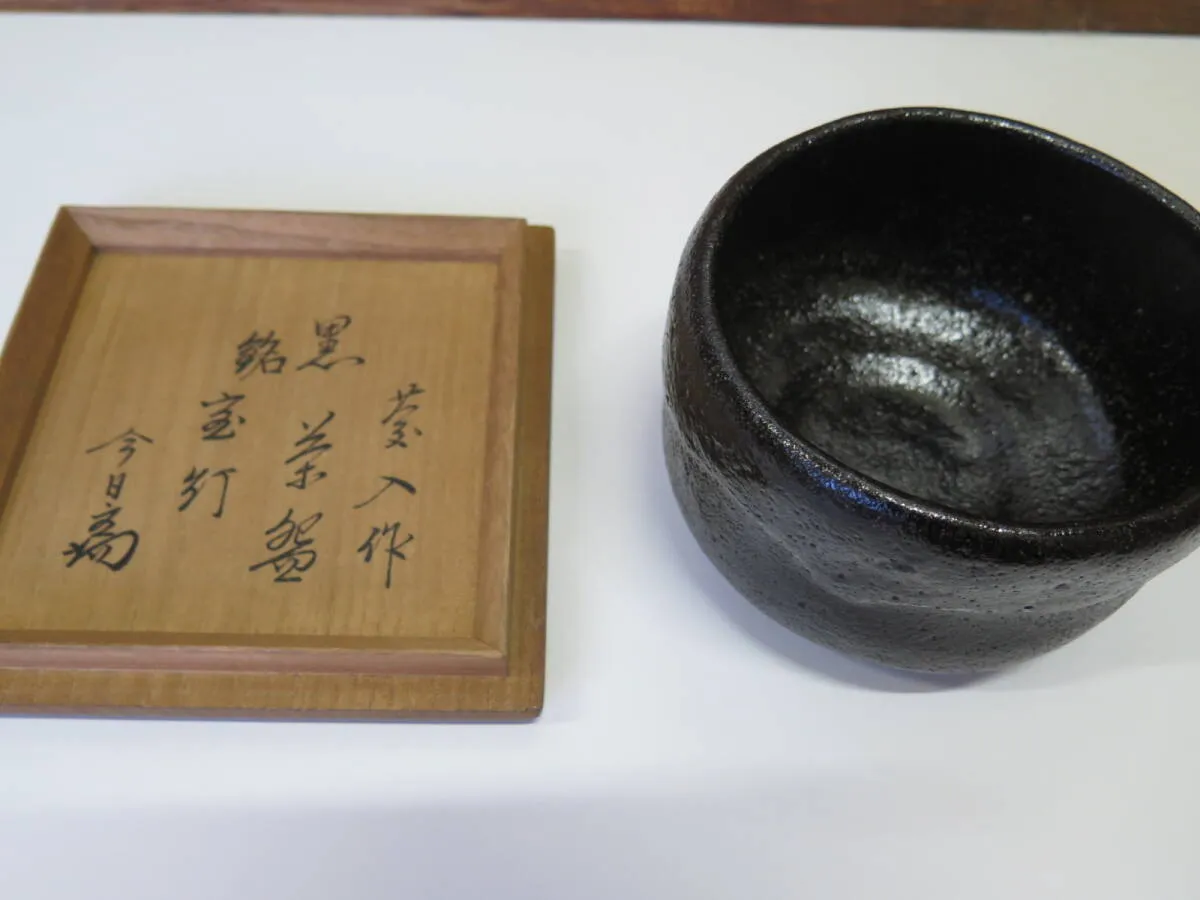 慶入作
黒茶盌
銘 宝灯
今日庵